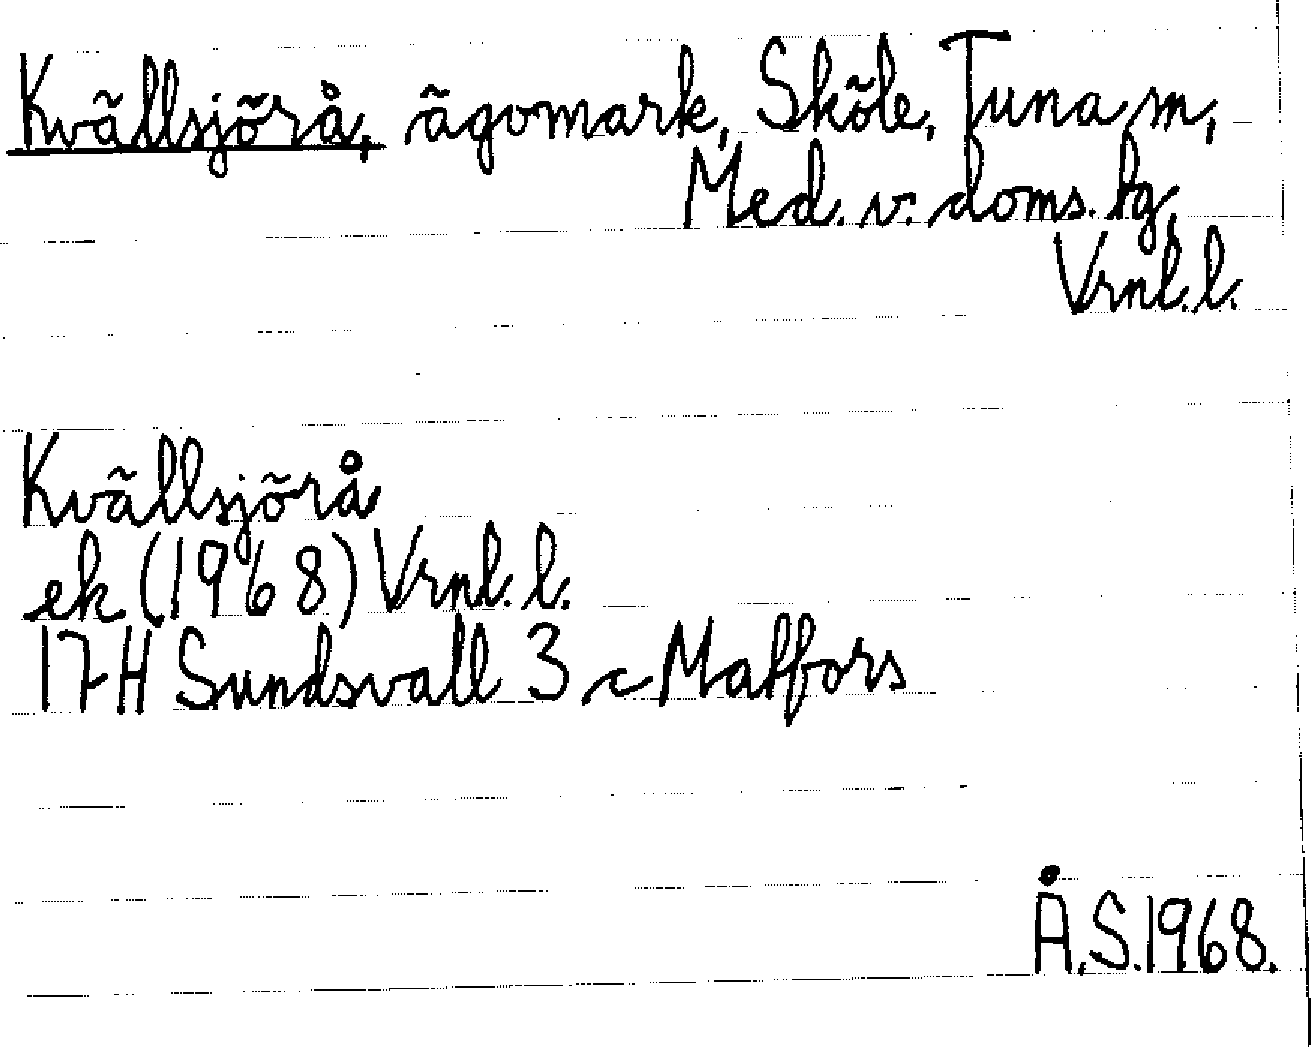 Kvällsjörå, ägomark, Sköle, Tuna sn,
Med. v. doms. lg,
Vrnl. l.
Kvällsjörå
ek (1968) Vrnl. l.
17H Sundsvall 3 c Matfors
Å.S. 1968.